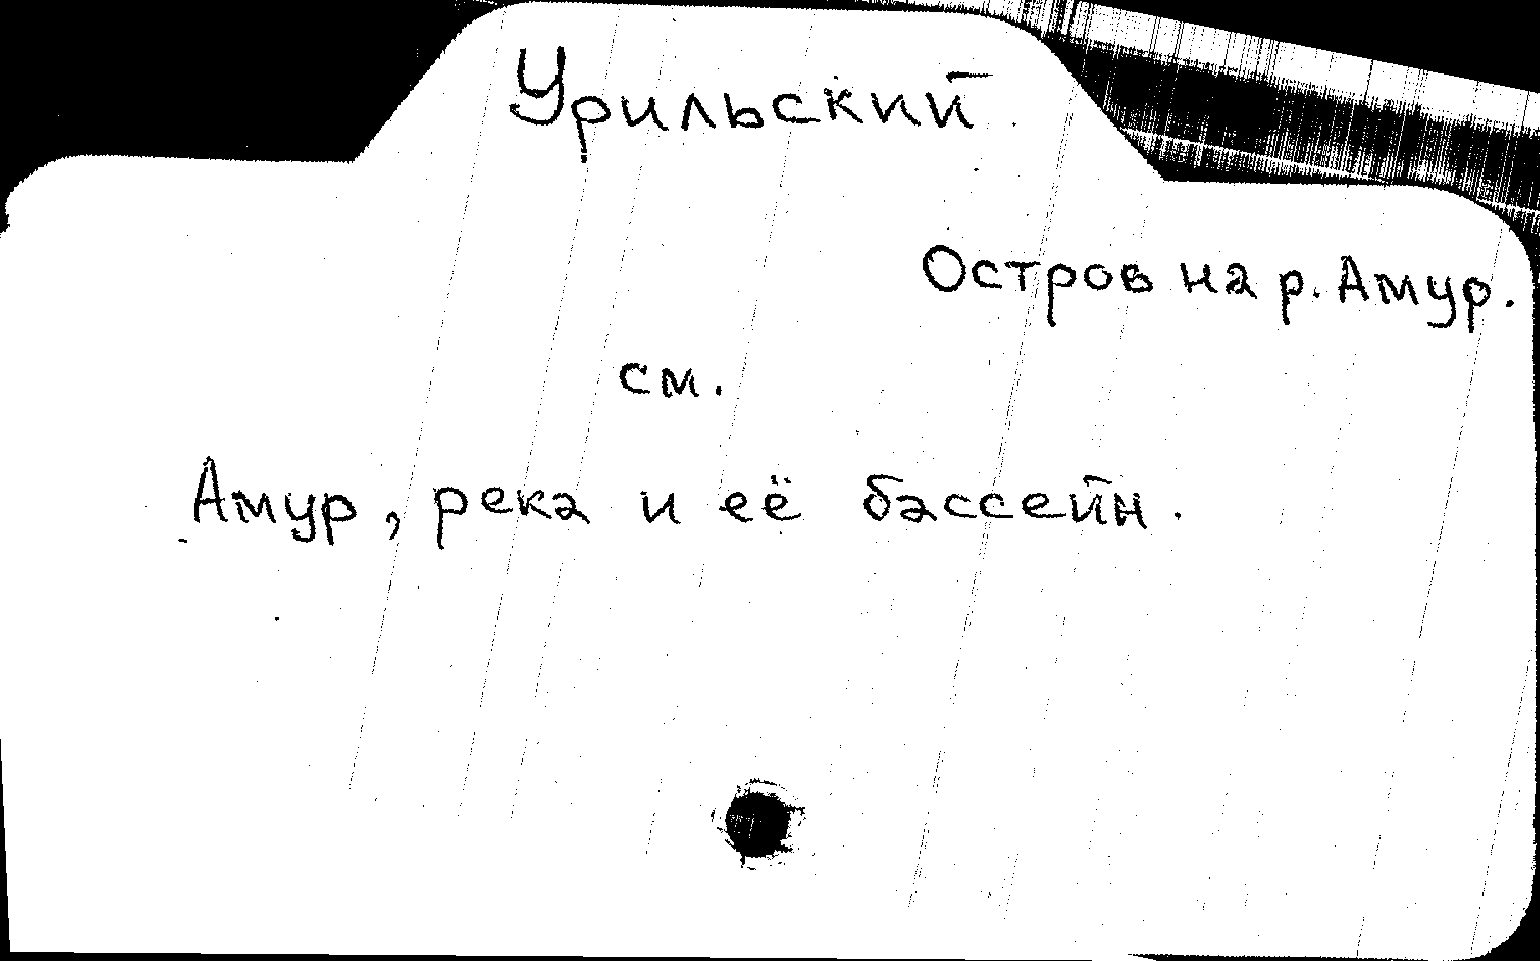 Урильский
Остров на р. Амур.
см.
Амур, река и её бассейн.